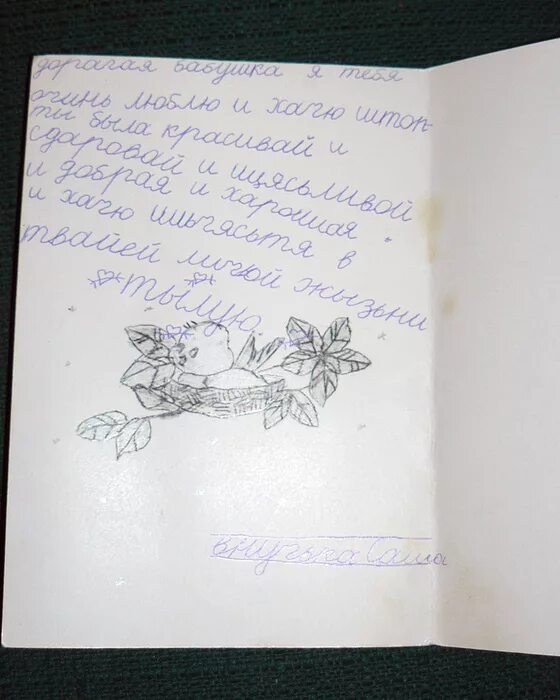 дорагая бабушка я тебя
очинь люблю и хачю штоп
ты была красивай и
сдаровай и щясьливой
и добрая и харошая
и хачю щьясьтя в
твайей жызьни
внучька Саша